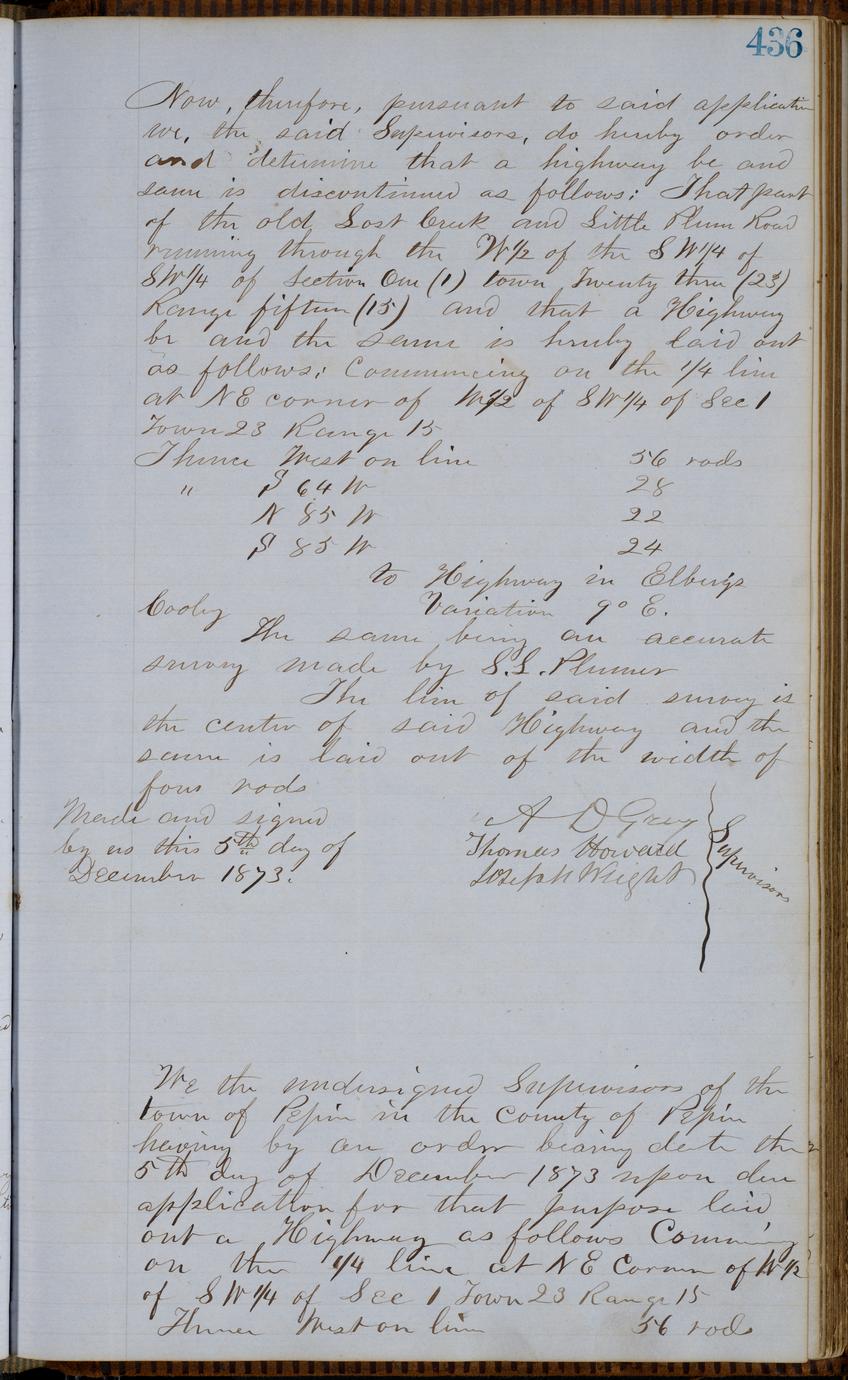 436
Now, therefore, pursuant to said application
we, the said Supervisors, do hereby order
and determine that a highway be and
same is discontinued as follows: That part
of the old Lost Creek and Little Plum Road
running through the W1/2 of the SW1/4 of
SW1/4 of Section One (1) town Twenty three (23)
Range fifteen (15) and that a Highway
be and the same is hereby laid out
as follows: Commencing on the 1/4 line
at NE corner of W1/2 of SW1/4 of Sec 1
Town 23 Range 15
Thence West on line 56 rods
" S 64 W 28
N 85 W 22
S 85 W 24
to Highway in Elbergs
Cooley Variation 9° E.
The same being an accurate
survey made by S.L. Plumer
The line of said survey is
the center of said Highway and the
same is laid out of the width of
four rods
Made and signed
by us this 5th day of
December 1873.
A D Gray
Thomas Howard
Joseph Wright
Supervisors
We the undersigned Supervisors of the
town of Pepin in the County of Pepin
having by an order bearing date the
5th day of December 1873 upon due
application for that purpose laid
out a Highway as follows Comming
on the 1/4 line at NE Corner of W 1/2
of SW 1/4 of Sec 1 Town 23 Range 15
Thence West on line 56 rods